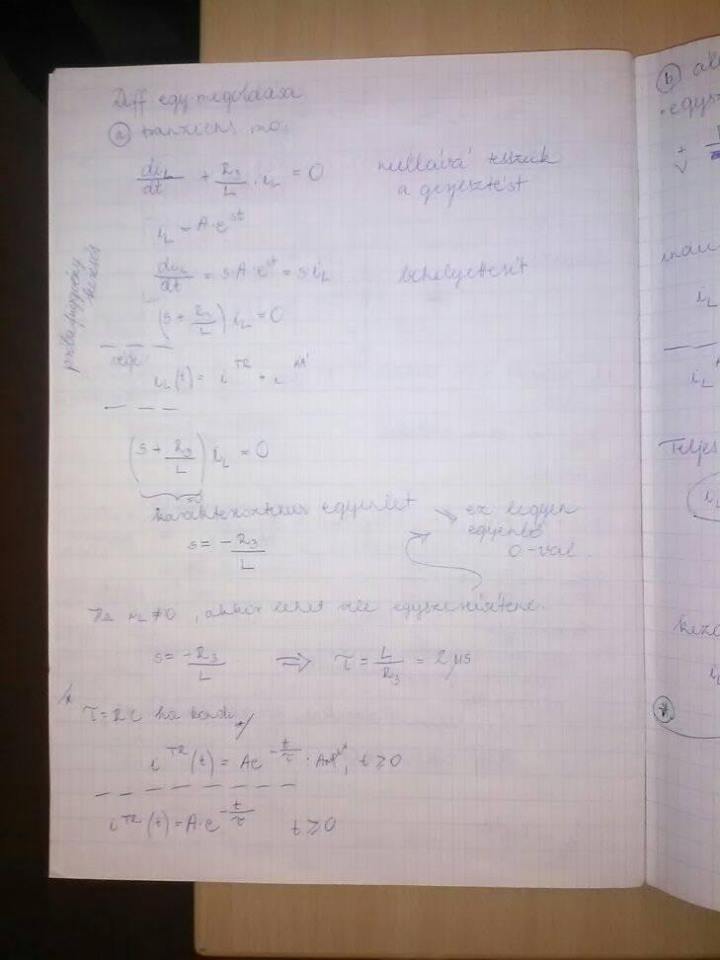 Diff egy. megoldása
ⓐ tranziens meg.
diL/dt + R3/L · iL = 0 nullává tesszük
a gerjesztést
iL = A·e^st
diL/dt = s·A·e^st = s·iL behelyettesít
próbafüggvény
(s + R3/L) iL = 0
iL(t) = i^TR + i^ÁÁ
(s + R3/L) iL = 0
=0
karakterisztikus egyenlet ez legyen
egyenlő
0-val
s = -R3/L
Ha iL ≠ 0, akkor lehet vele egyszerűsíteni.
s = -R3/L ⇒ τ = L/R3 = 2 μs
τ = RC ha kondi
i^TR(t) = Ae^(-t/τ) · t ≥ 0
i^TR(t) = A·e^(-t/τ) t ≥ 0
ⓑ
iL
iL
Teljes
iL
iL